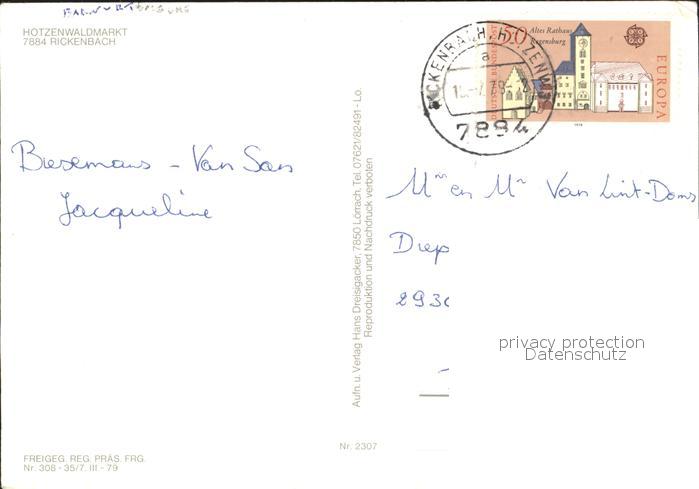 HOTZENWALDMARKT
7884 RICKENBACH
50 Altes Rathaus
Regensburg
DEUTSCHE BUNDESPOST
EUROPA
1978
RICKENBACH, HOTZENW
a
7884
Biesemans - Van San
Jacqueline
Mr en Mr Van Lint-Doms
Diep
293
privacy protection
Datenschutz
Aufn. u. Verlag Hans Dreisigacker, 7850 Lörrach, Tel. 07621/82491 - Lo.
Reproduktion und Nachdruck verboten
Nr. 2307
FREIGEG. REG. PRÄS. FRG.
Nr. 308 - 35/7. III - 79